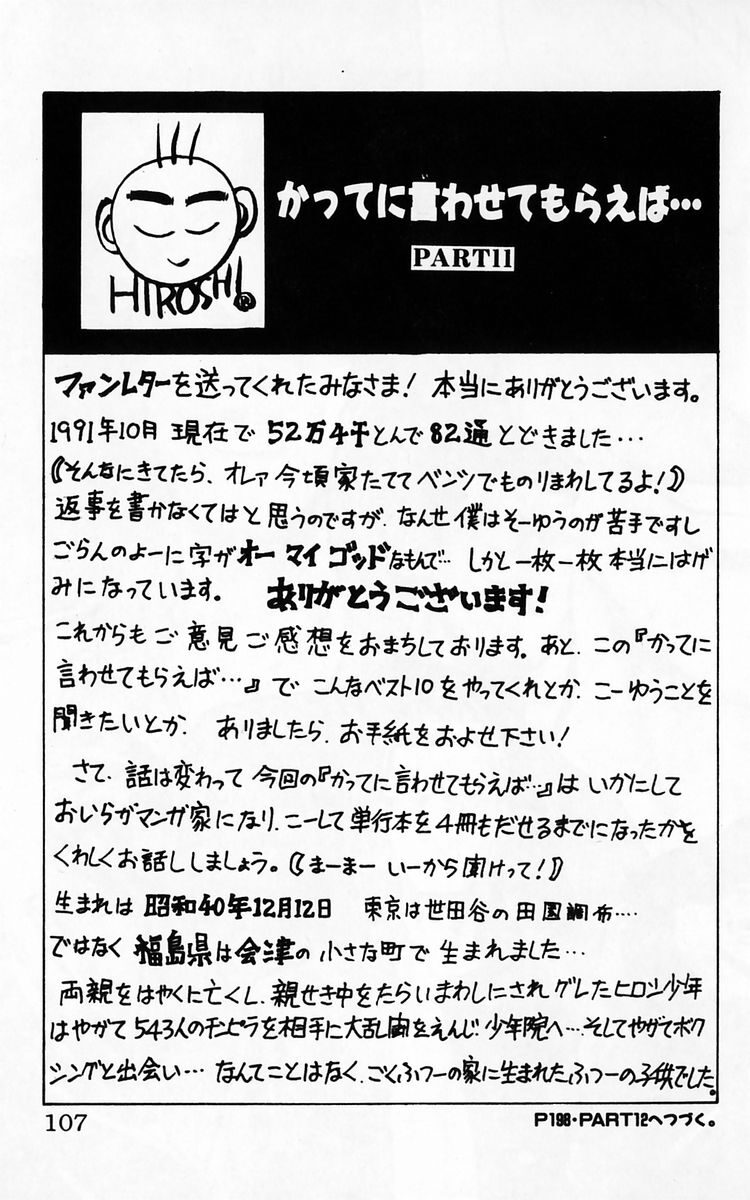 HIROSHI
かってに言わせてもらえば…
PART11
ファンレターを送ってくれたみなさま! 本当にありがとうございます。
1991年10月 現在で 52万4千とんで 82通 とどきました…
《そんなにきてたら、オレァ 今頃家たてて ベンツでものりまわしてるよ!》
返事を書かなくてはと 思うのですが、なんせ 僕はそーゆうのが 苦手ですし
ごらんのよーに字が オー マイ ゴッド なもんで… しかと一枚一枚 本当にはげ
みになっています。 ありがとうございます!
これからも ご 意見 ご 感想をおまちしております。あと、この『かってに
言わせてもらえば…』で こんなベスト10をやってくれとか、こーゆうことを
聞きたいとか、 ありましたら、お手紙をおよせ下さい!
さて、話は変わって 今回の『かってに言わせてもらえば…』は いかにして
おいらがマンガ家になり、こーして単行本を4冊もだせるまでになったかを
くわしくお話ししましょう。《まーまー いーから聞けって!》
生まれは 昭和40年12月12日 東京は世田谷の田園調布‥‥
ではなく 福島県は会津の 小さな町で 生まれました…
両親をはやくに亡くし、親せき中をたらいまわしにされ グレたヒロシ少年
はやがて 543人のチンピラを相手に大乱闘をえんじ 少年院へ…そしてやがてボク
シングと出会い… なんてことはなく、ごくふつーの家に生まれたふつーの子供でした。
107
P198・PART12へつづく。